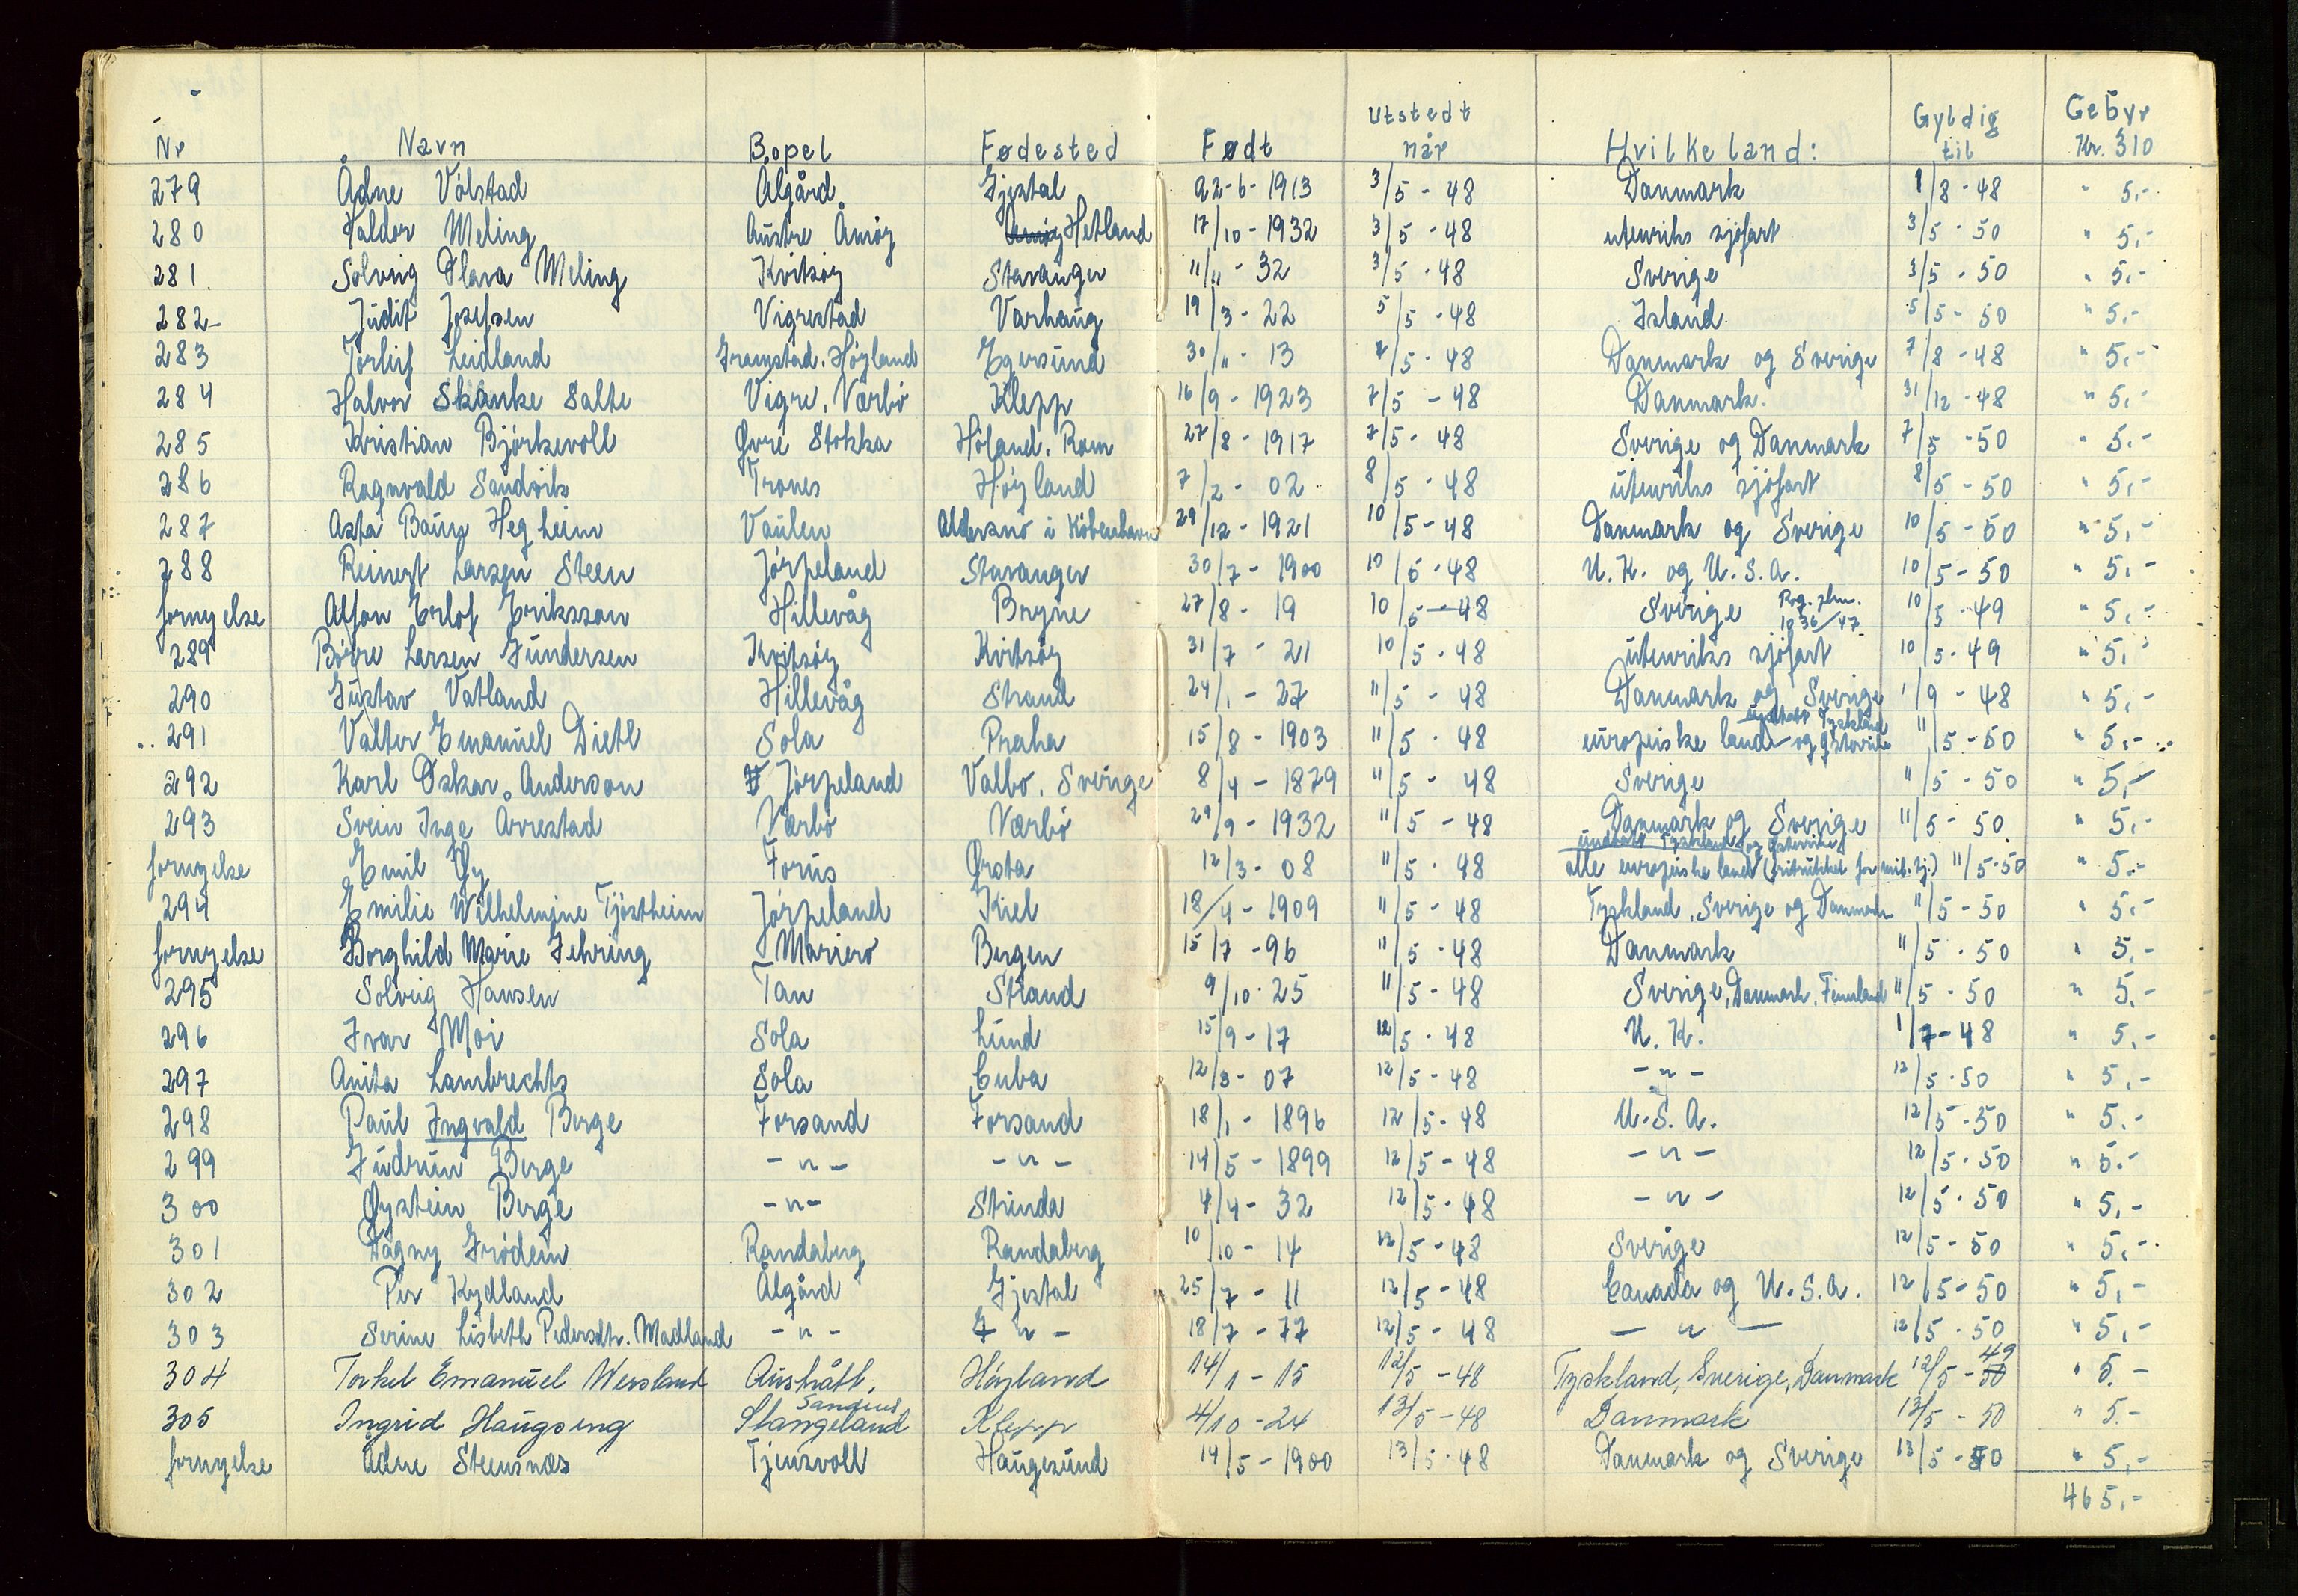 Nr Navn Bopel Fødested Født Utstedt når Hvilke land: Gyldig til Gebyr Kr. 310
279 Ådne Vølstad Ålgård Gjestal 22-6-1913 3/5-48 Danmark 1/8-48 " 5,-
280 Haldor Meling Austre Åmøy Hetland 17/10-1932 3/5-48 utenriks sjøfart 3/5-50 " 5,-
281. Solveig Olava Meling Kvitsøy Stavanger 11/11-32 3/5-48 Sverige 3/5-50 " 5,-
282 Judit Josefsen Vigrestad Varhaug 19/3-22 5/5-48 Island 5/5-50 " 5,-
283 Torleif Leidland Gramstad. Høyland Egersund 30/11-13 7/5-48 Danmark og Sverige 7/8-48 " 5,-
284 Halvor Skanke Salte Vigre, Nærbø Klepp 16/9-1923 7/5-48 Danmark. 31/12-48 " 5,-
285 Kristian Bjørkevoll Øvre Stokka Høland. Rom 27/8-1917 7/5-48 Sverige og Danmark 7/5-50 " 5,-
286 Ragnvald Sandvik Trones Høyland 7/2-02 8/5-48 utenriks sjøfart 8/5-50 " 5,-
287 Asta Baun Hegheim Vaulen i København 29/12-1921 10/5-48 Danmark og Sverige 10/5-50 " 5,-
288 Reinert Larsen Steen Jørpeland Stavanger 30/7-1900 10/5-48 U.K. og U.S.A. 10/5-50 " 5,-
fornyelse Alfon Erlof Eriksson Hillevåg Bryne 27/8-19 10/5-48 Sverige 1036/47 10/5-49 " 5,-
289 Børre Larsen Gundersen Kvitsøy Kvitsøy 31/7-21 10/5-48 utenriks sjøfart 10/5-49 " 5,-
290 Gustav Vatland Hillevåg Strand 24/1-27 11/5-48 Danmark og Sverige 1/9-48 " 5,-
291 Valter Emanuel Dietl Sola Praha 15/8-1903 11/5-48 europeiske land unntatt Tyskland og Østerrike 11/5-50 " 5,-
292 Karl Oskar Anderson Jørpeland Valbo, Sverige 8/4-1879 11/5-48 Sverige 11/5-50 " 5,-
293 Svein Inge Årrestad Nærbø Nærbø 29/9-1932 11/5-48 Danmark og Sverige 11/5-50 " 5,-
fornyelse Emil Øy Forus Ørsta 12/3-08 11/5-48 alle europeiske land unntatt Tyskland og Østerrike (fritukket for mil.tj.) 11/5-50 " 5,-
294 Emilie Wilhelmine Tjøstheim Jørpeland Kiel 18/4-1909 11/5-48 Tyskland, Sverige og Danmark 11/5-50 " 5,-
fornyelse Borghild Marie Jehring Mariero Bergen 15/7-96 11/5-48 Danmark 11/5-50 " 5,-
295 Solveig Hansen Tau Strand 9/10-25 11/5-48 Sverige, Danmark, Finnland 11/5-50 " 5,-
296 Ivar Moi Sola Lund 15/9-17 12/5-48 U.K. 1/7-48 " 5,-
297 Anita Lambrechts Sola Cuba 12/3-07 12/5-48 -"- 12/5-50 " 5,-
298 Paul Ingvald Berge Forsand Forsand 18/1-1896 12/5-48 U.S.A. 12/5-50 " 5,-
299 Gudrun Berge -"- -"- 14/5-1899 12/5-48 -"- 12/5-50 " 5,-
300 Øystein Berge -"- Strinda 4/4-32 12/5-48 -"- 12/5-50 " 5,-
301 Dagny Grødem Randaberg Randaberg 10/10-14 12/5-48 Sverige 12/5-50 " 5,-
302 Per Kydland Ålgård Gjestal 25/7-11 12/5-48 Canada og U.S.A. 12/5-50 " 5,-
303 Serine Lisbeth Pedersdtr. Madland -"- -"- 18/7-77 12/5-48 -"- 12/5-50 " 5,-
304 Torkel Emanuel Wersland Austrått, Høyland 14/1-15 12/5-48 Tyskland, Sverige, Danmark 12/5-49 " 5.-
305 Ingrid Haugseng Stangeland Sandnes Klepp 4/10-24 13/5-48 Danmark 13/5-50 " 5.-
fornyelse Ådne Steensnæs Tjensvoll Haugesund 14/5-1900 13/5-48 Danmark og Sverige 13/5-50 " 5,-
465,-